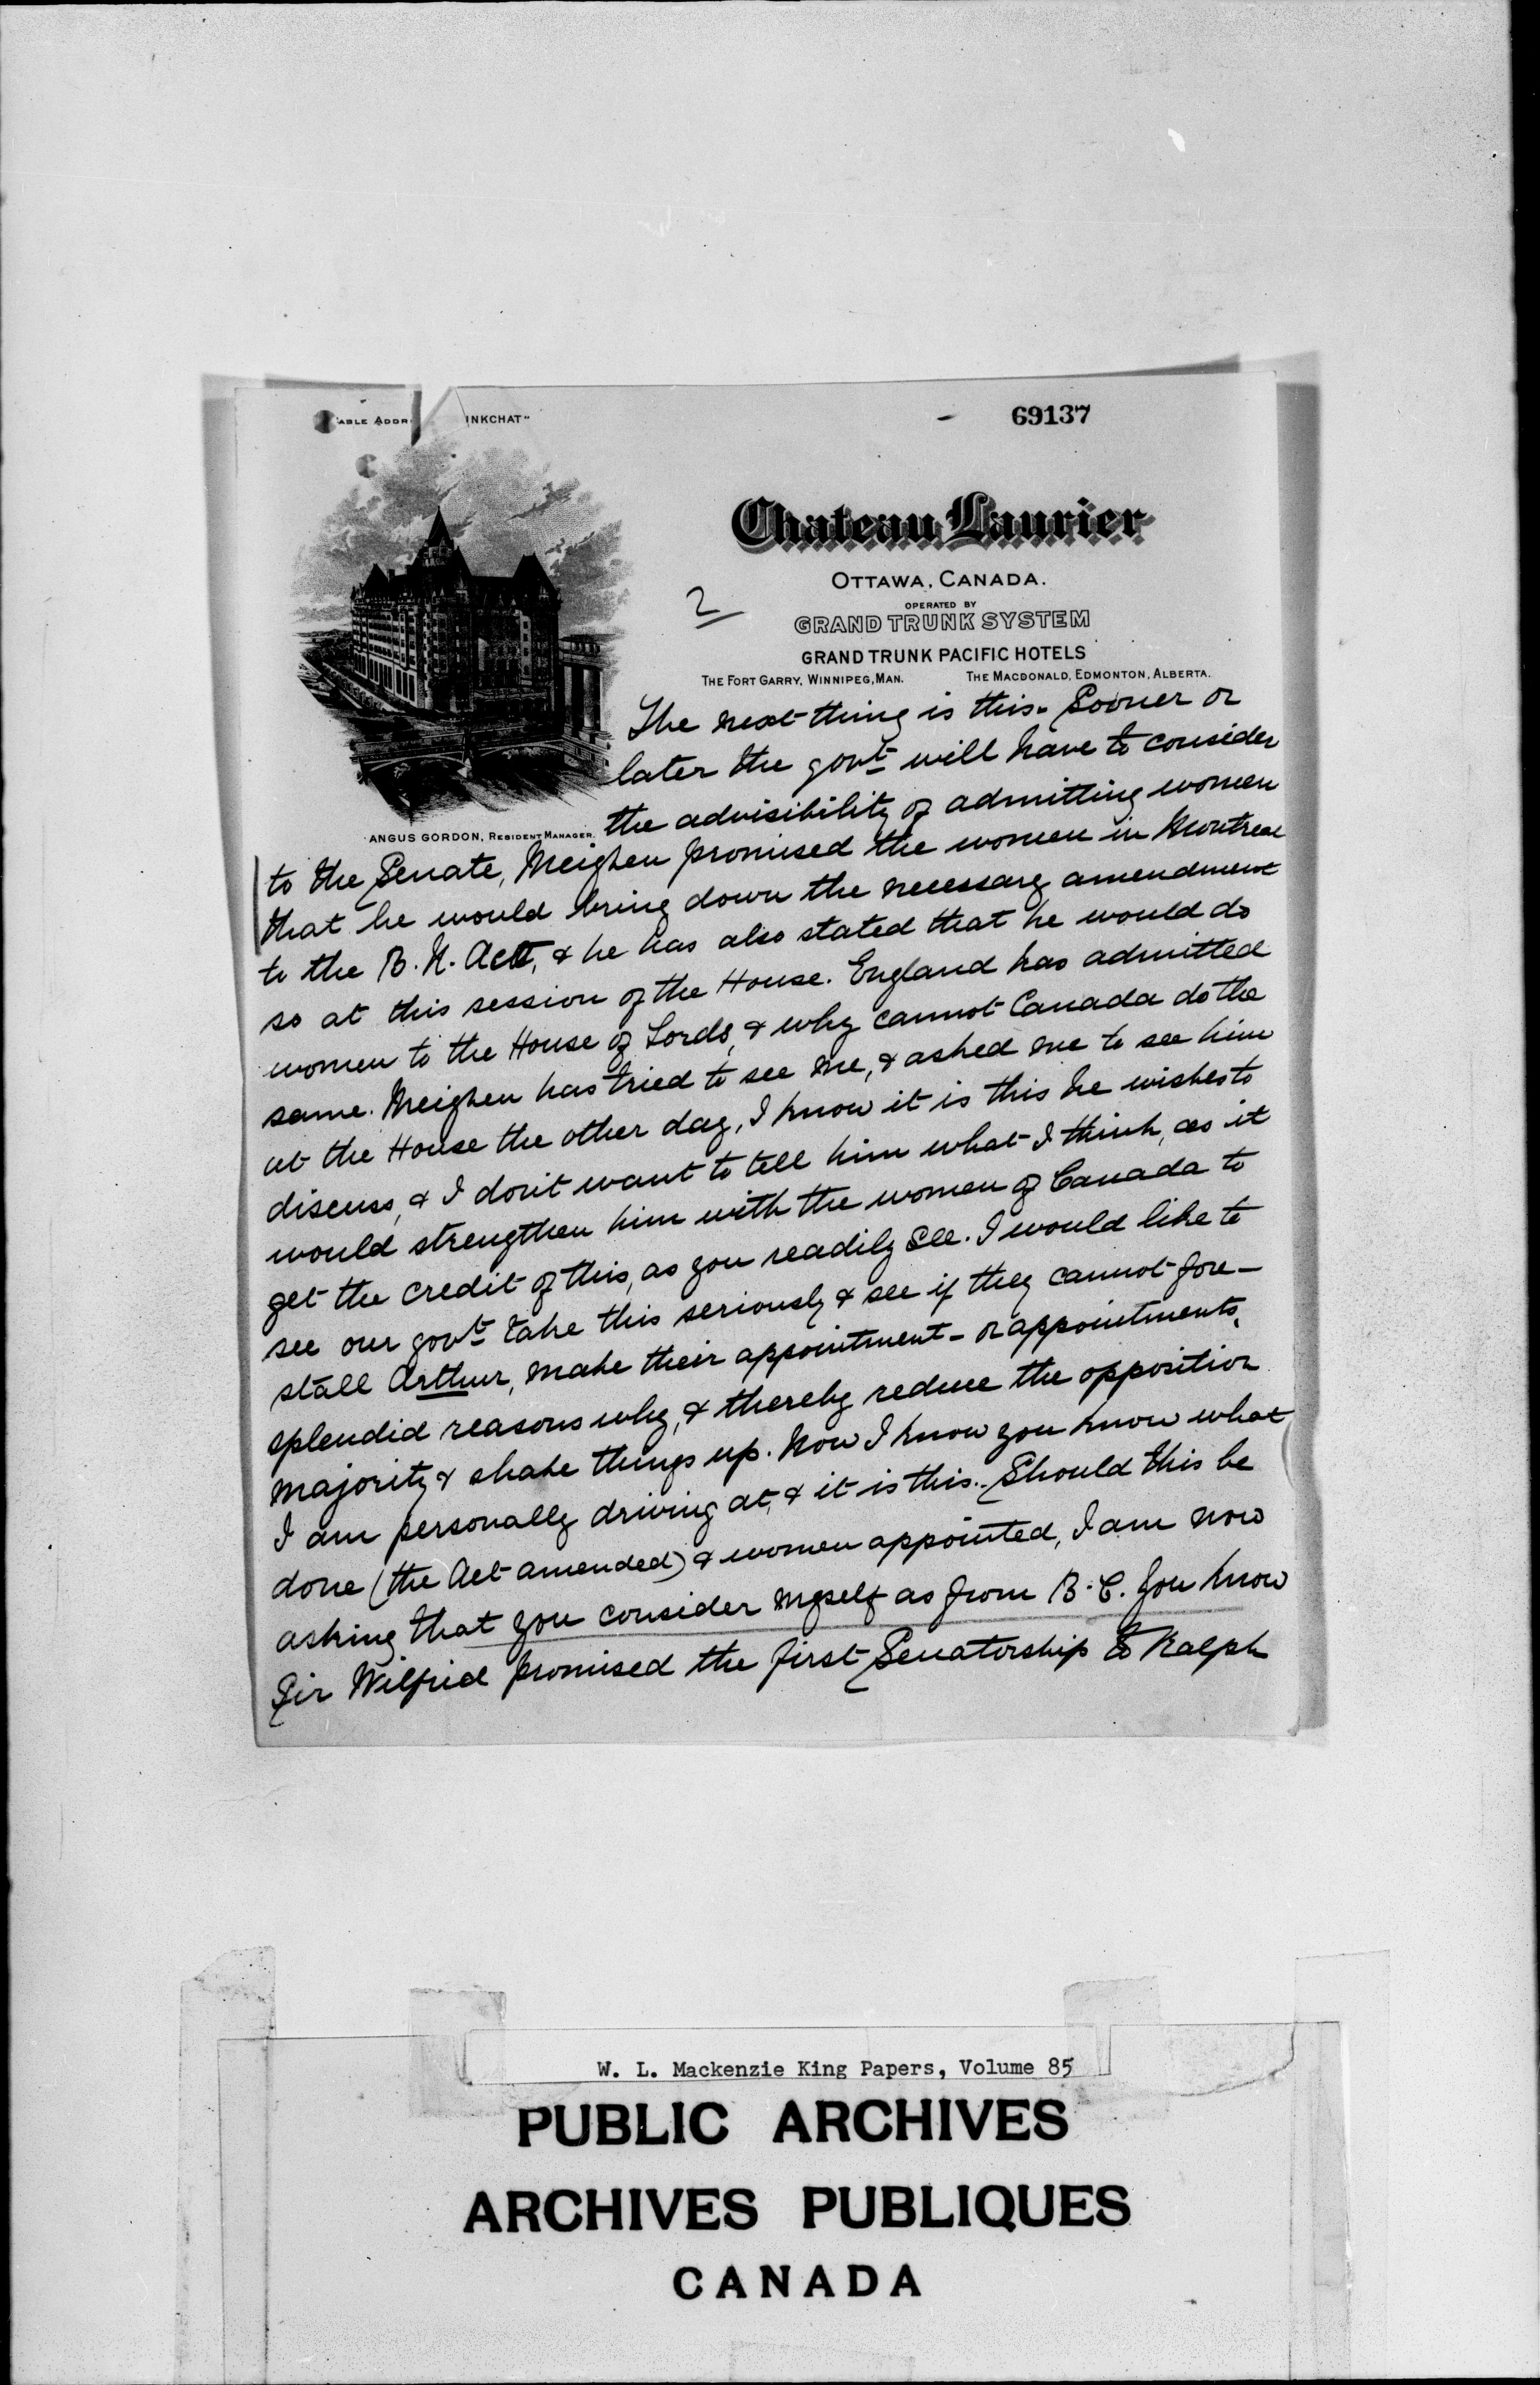 69137
CABLE ADDR INKCHAT"
Chateau Laurier
OTTAWA, CANADA.
2
OPERATED BY
GRAND TRUNK SYSTEM
GRAND TRUNK PACIFIC HOTELS
THE FORT GARRY, WINNIPEG, MAN. THE MACDONALD, EDMONTON, ALBERTA.
ANGUS GORDON, RESIDENT MANAGER.
The next thing is this. Sooner or
later the govt will have to consider
the advisibility of admitting women
to the Senate, Meighen promised the women in Montreal
that he would bring down the necessary amendment
to the B. N. Act, & he has also stated that he would do
so at this session of the House. England has admitted
women to the House of Lords, & why cannot Canada do the
same. Meighen has tried to see me, & asked me to see him
at the House the other day, I know it is this he wishes to
discuss, & I don't want to tell him what I think, as it
would strengthen him with the women of Canada to
get the credit of this, as you readily see. I would like to
see our govt take this seriously & see if they cannot fore-
stall Arthur, make their appointment - or appointments,
splendid reasons why, & thereby reduce the opposition
majority & shake things up. Now I know you know what
I am personally driving at, & it is this.. Should this be
done (the Act amended) & women appointed, I am now
asking that you consider myself as from B. C. You know
Sir Wilfrid promised the first Senatorship to Ralph
W. L. Mackenzie King Papers, Volume 85
PUBLIC ARCHIVES
ARCHIVES PUBLIQUES
CANADA